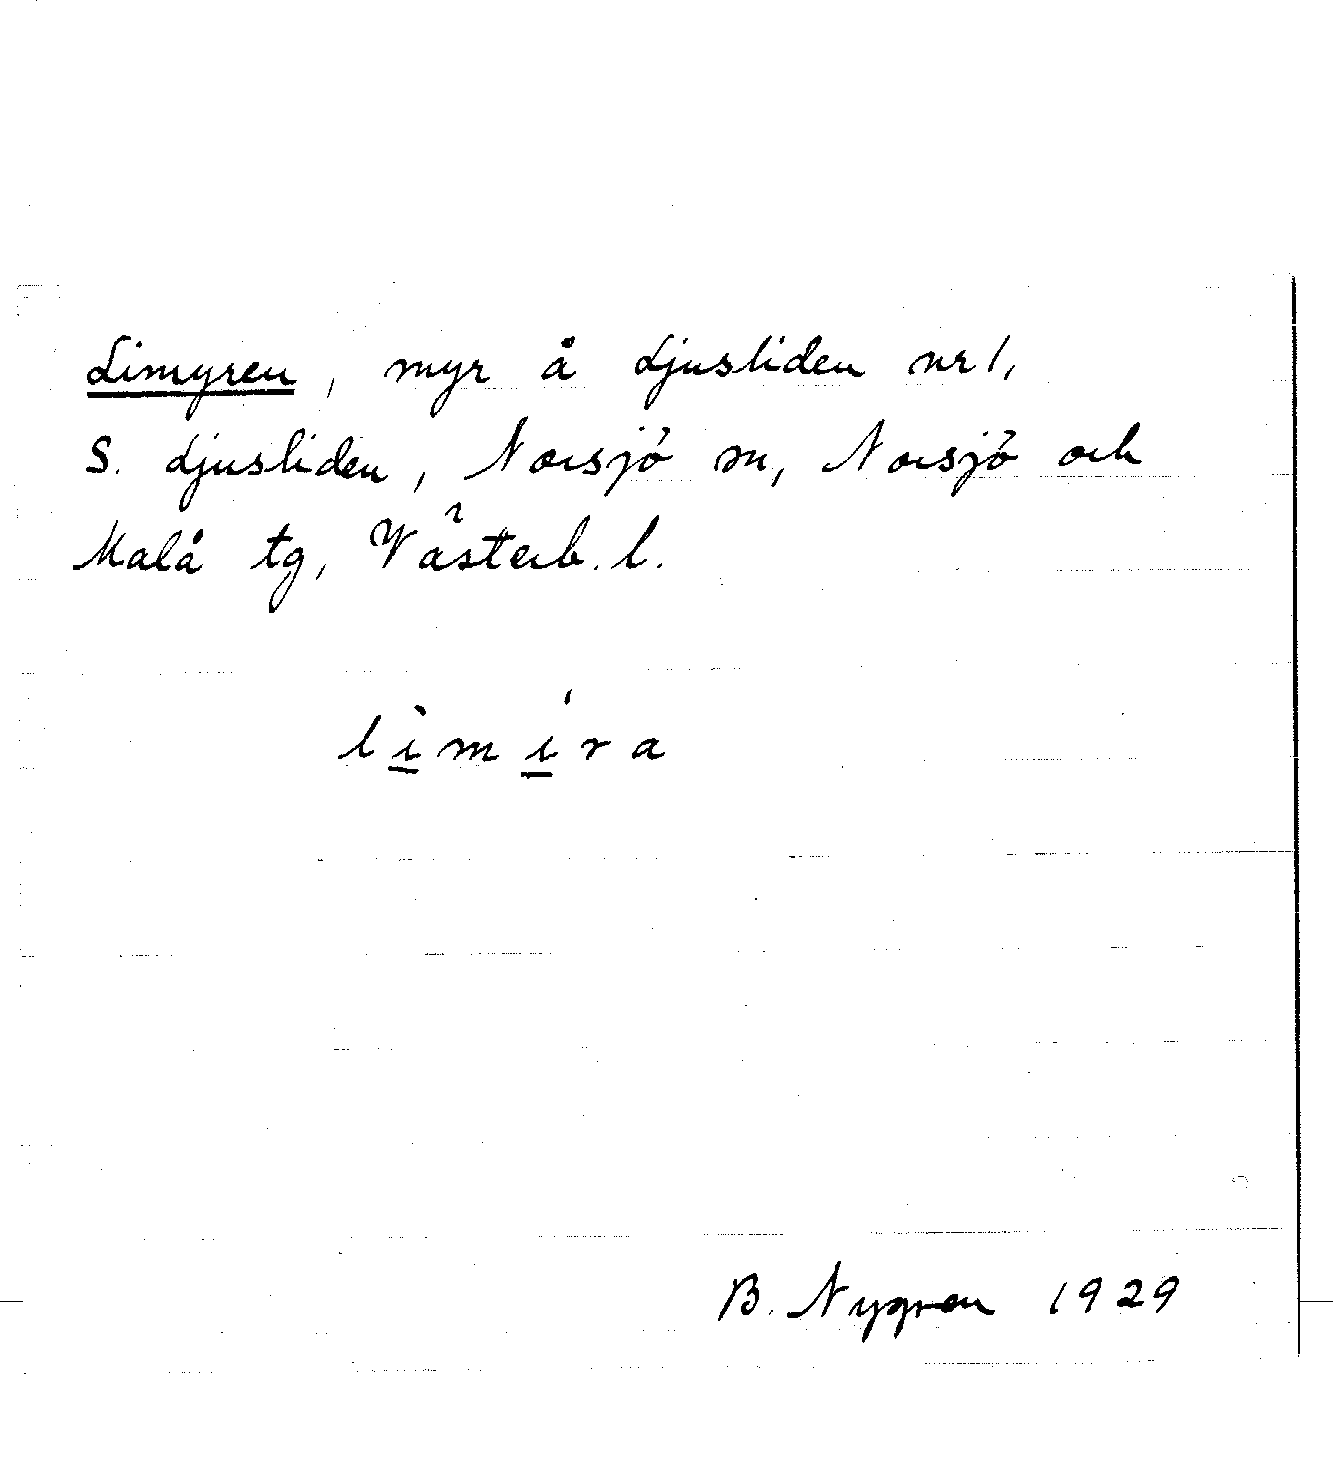 Limyren, myr å Ljusliden nr 1,
S. Ljusliden, Norsjö sn, Norsjö och
Malå tg, Västerb. l.
lìmíra
B. Nygren 1929